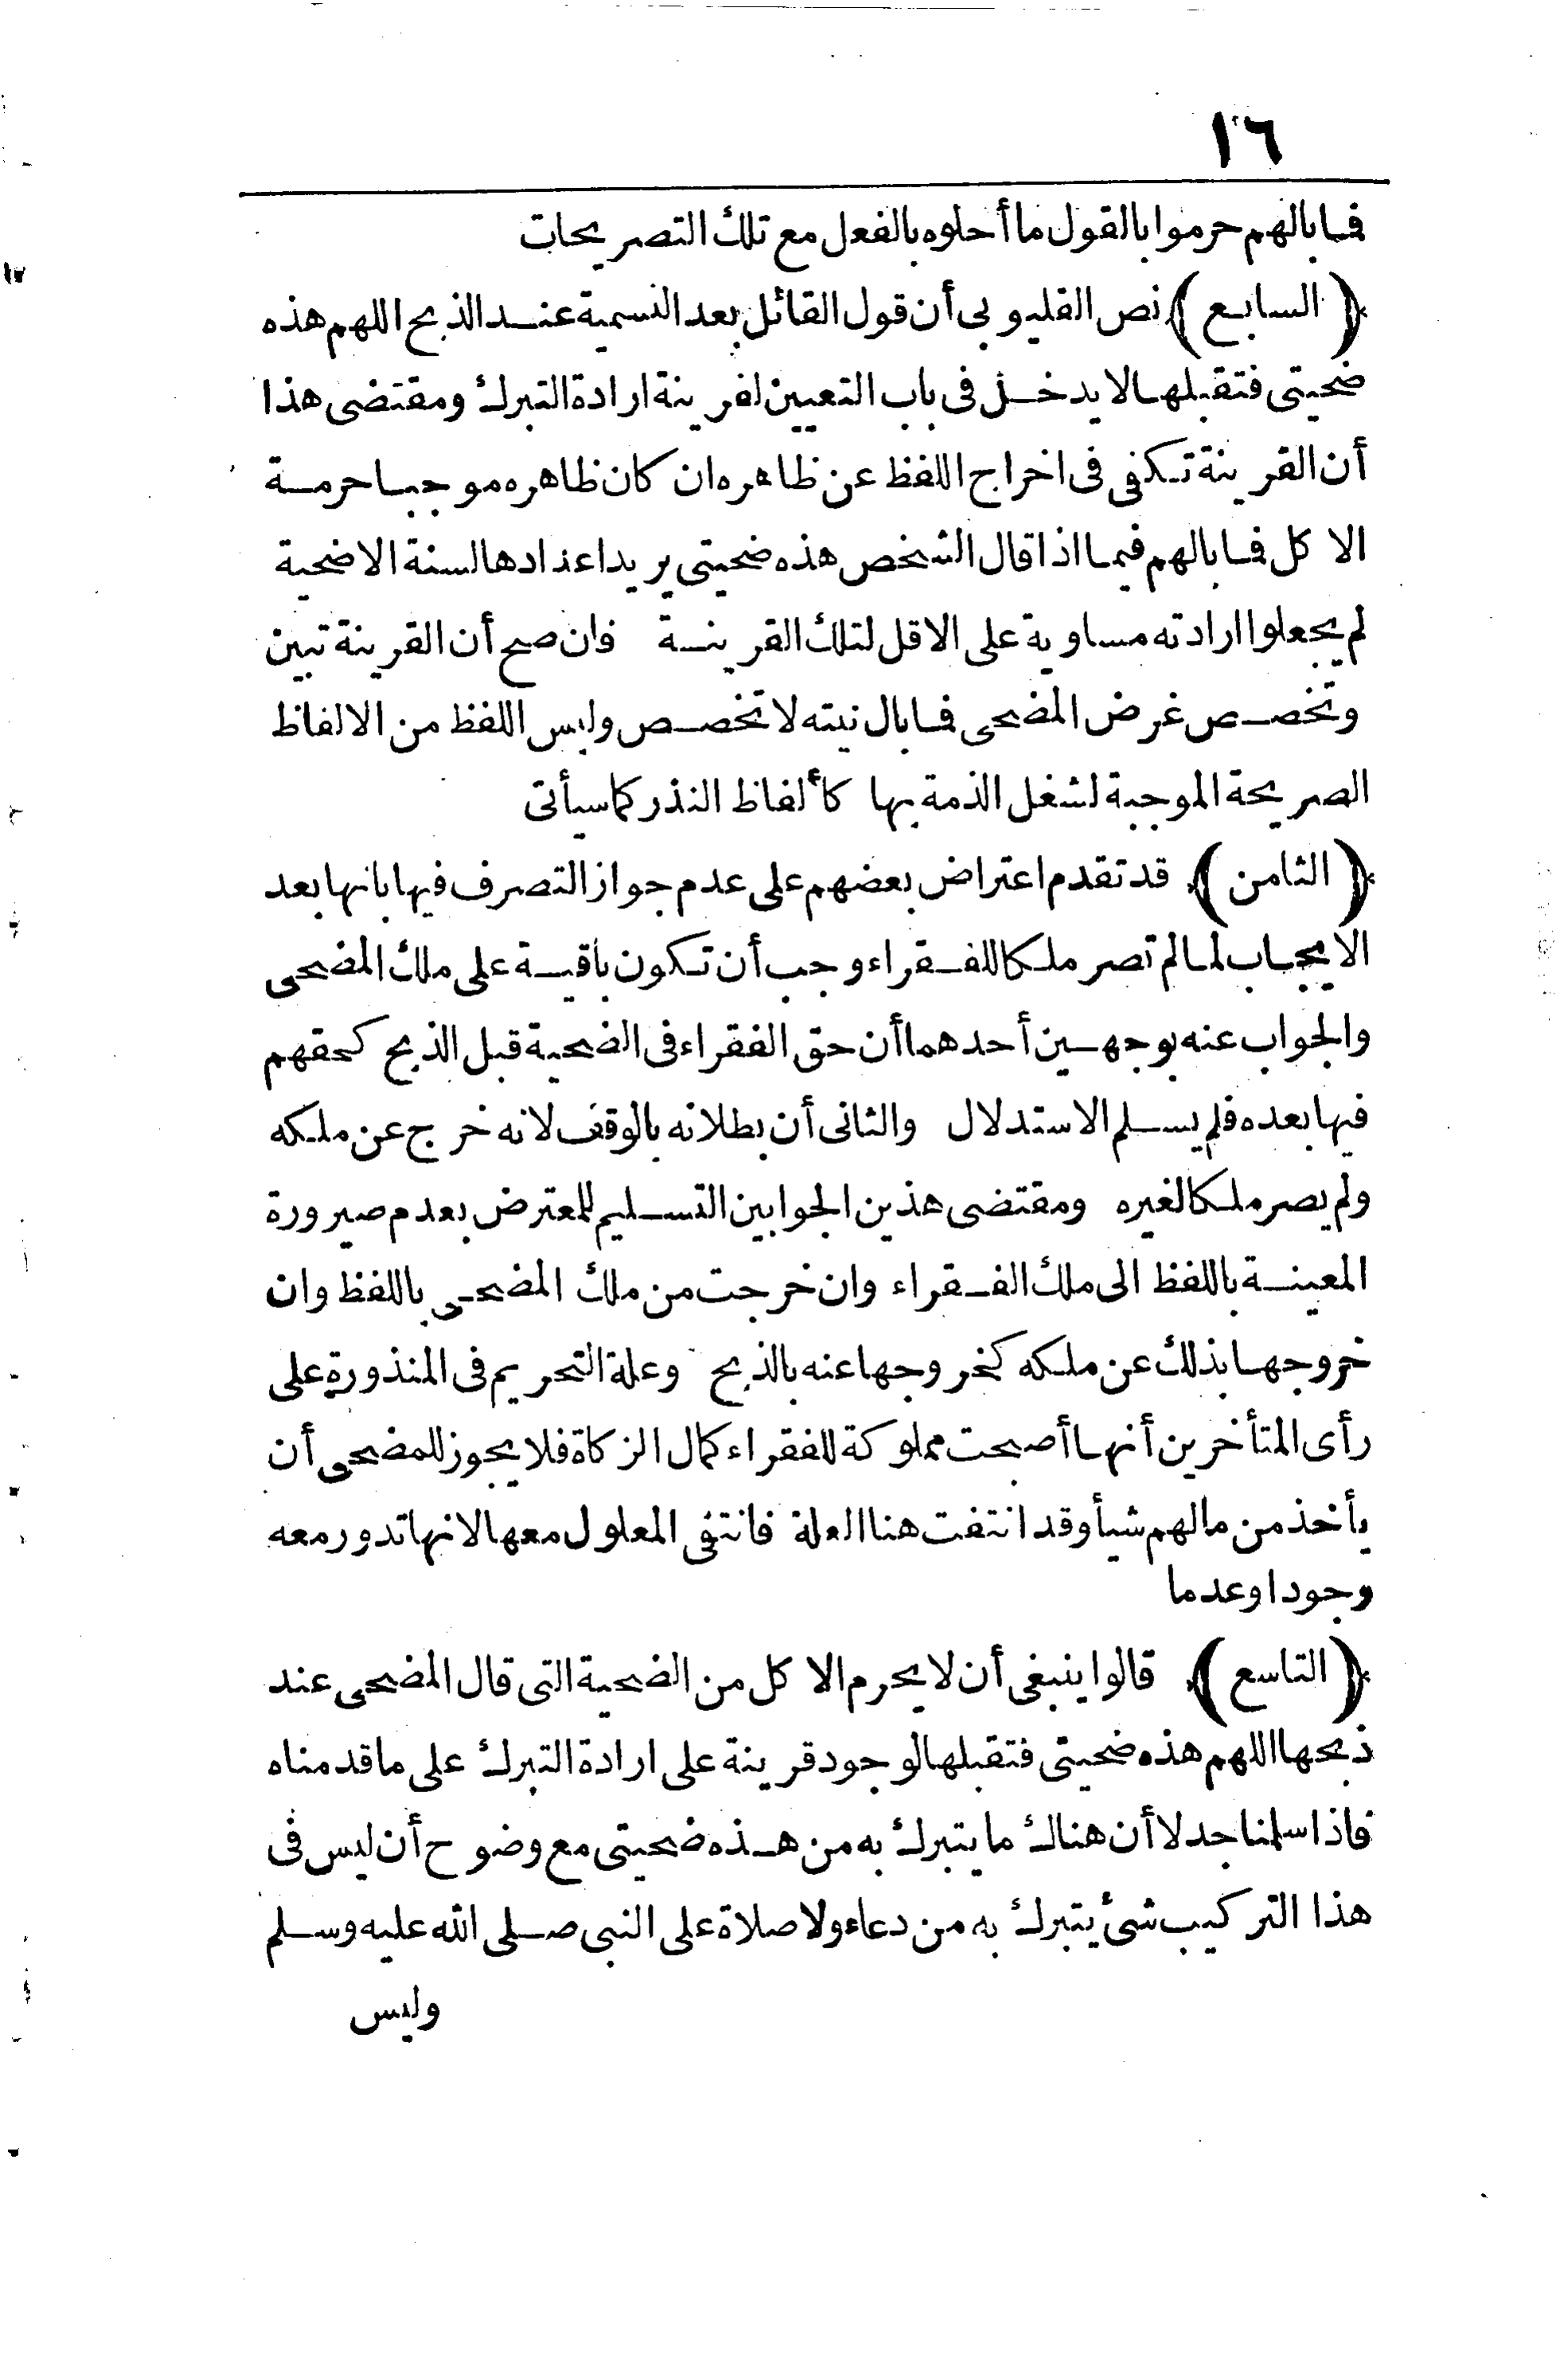 ١٦
فما بالهم حرموا بالقول ما أحلوه بالفعل مع تلك التصريحات
﴿السابع﴾ نص القليوبى أن قول القائل بعد التسمية عند الذبح اللهم هذه
ضحيتى فتقبلها لا يدخل فى باب التعيين لقرينة ارادة التبرك ومقتضى هذا
أن القرينة تكفى فى اخراج اللفظ عن ظاهره ان كان ظاهره موجبا حرمة
الاكل فما بالهم فيما اذا قال الشخص هذه ضحيتى يريد اعدادها لسنة الاضحية
لم يجعلوا ارادته مساوية على الاقل لتلك القرينة فان صح أن القرينة تبين
وتخصص غرض المضحى فما بال نيته لا تخصص وليس اللفظ من الالفاظ
الصريحة الموجبة لشغل الذمة بها كألفاظ النذر كما سيأتى
﴿الثامن﴾ قد تقدم اعتراض بعضهم على عدم جواز التصرف فيها بانها بعد
الايجاب لما لم تصر ملكا للفقراء وجب أن تكون باقية على ملك المضحى
والجواب عنه بوجهين أحدهما أن حق الفقراء فى الضحية قبل الذبح كحقهم
فيها بعده فلم يسلم الاستدلال والثانى أن بطلانه بالوقف لانه خرج عن ملكه
ولم يصر ملكا لغيره ومقتضى هذين الجوابين التسليم للمعترض بعدم صيرورة
المعينة باللفظ الى ملك الفقراء وان خرجت من ملك المضحى باللفظ وان
خروجها بذلك عن ملكه كخروجها عنه بالذبح وعلة التحريم فى المنذورة على
رأى المتأخرين أنها أصبحت مملوكة للفقراء كمال الزكاة فلا يجوز للمضحى أن
يأخذ من مالهم شيأ وقد انتفت هنا العلة فانتفى المعلول معها لانها تدور معه
وجودا وعدما
﴿التاسع﴾ قالوا ينبغى أن لا يحرم الاكل من الضحية التى قال المضحى عند
ذبحها اللهم هذه ضحيتى فتقبلها لوجود قرينة على ارادة التبرك على ما قدمناه
فاذا سلمنا جدلا أن هناك ما يتبرك به من هذه ضحيتى مع وضوح أن ليس فى
هذا التركيب شئ يتبرك به من دعاء ولا صلاة على النبى صلى الله عليه وسلم
وليس